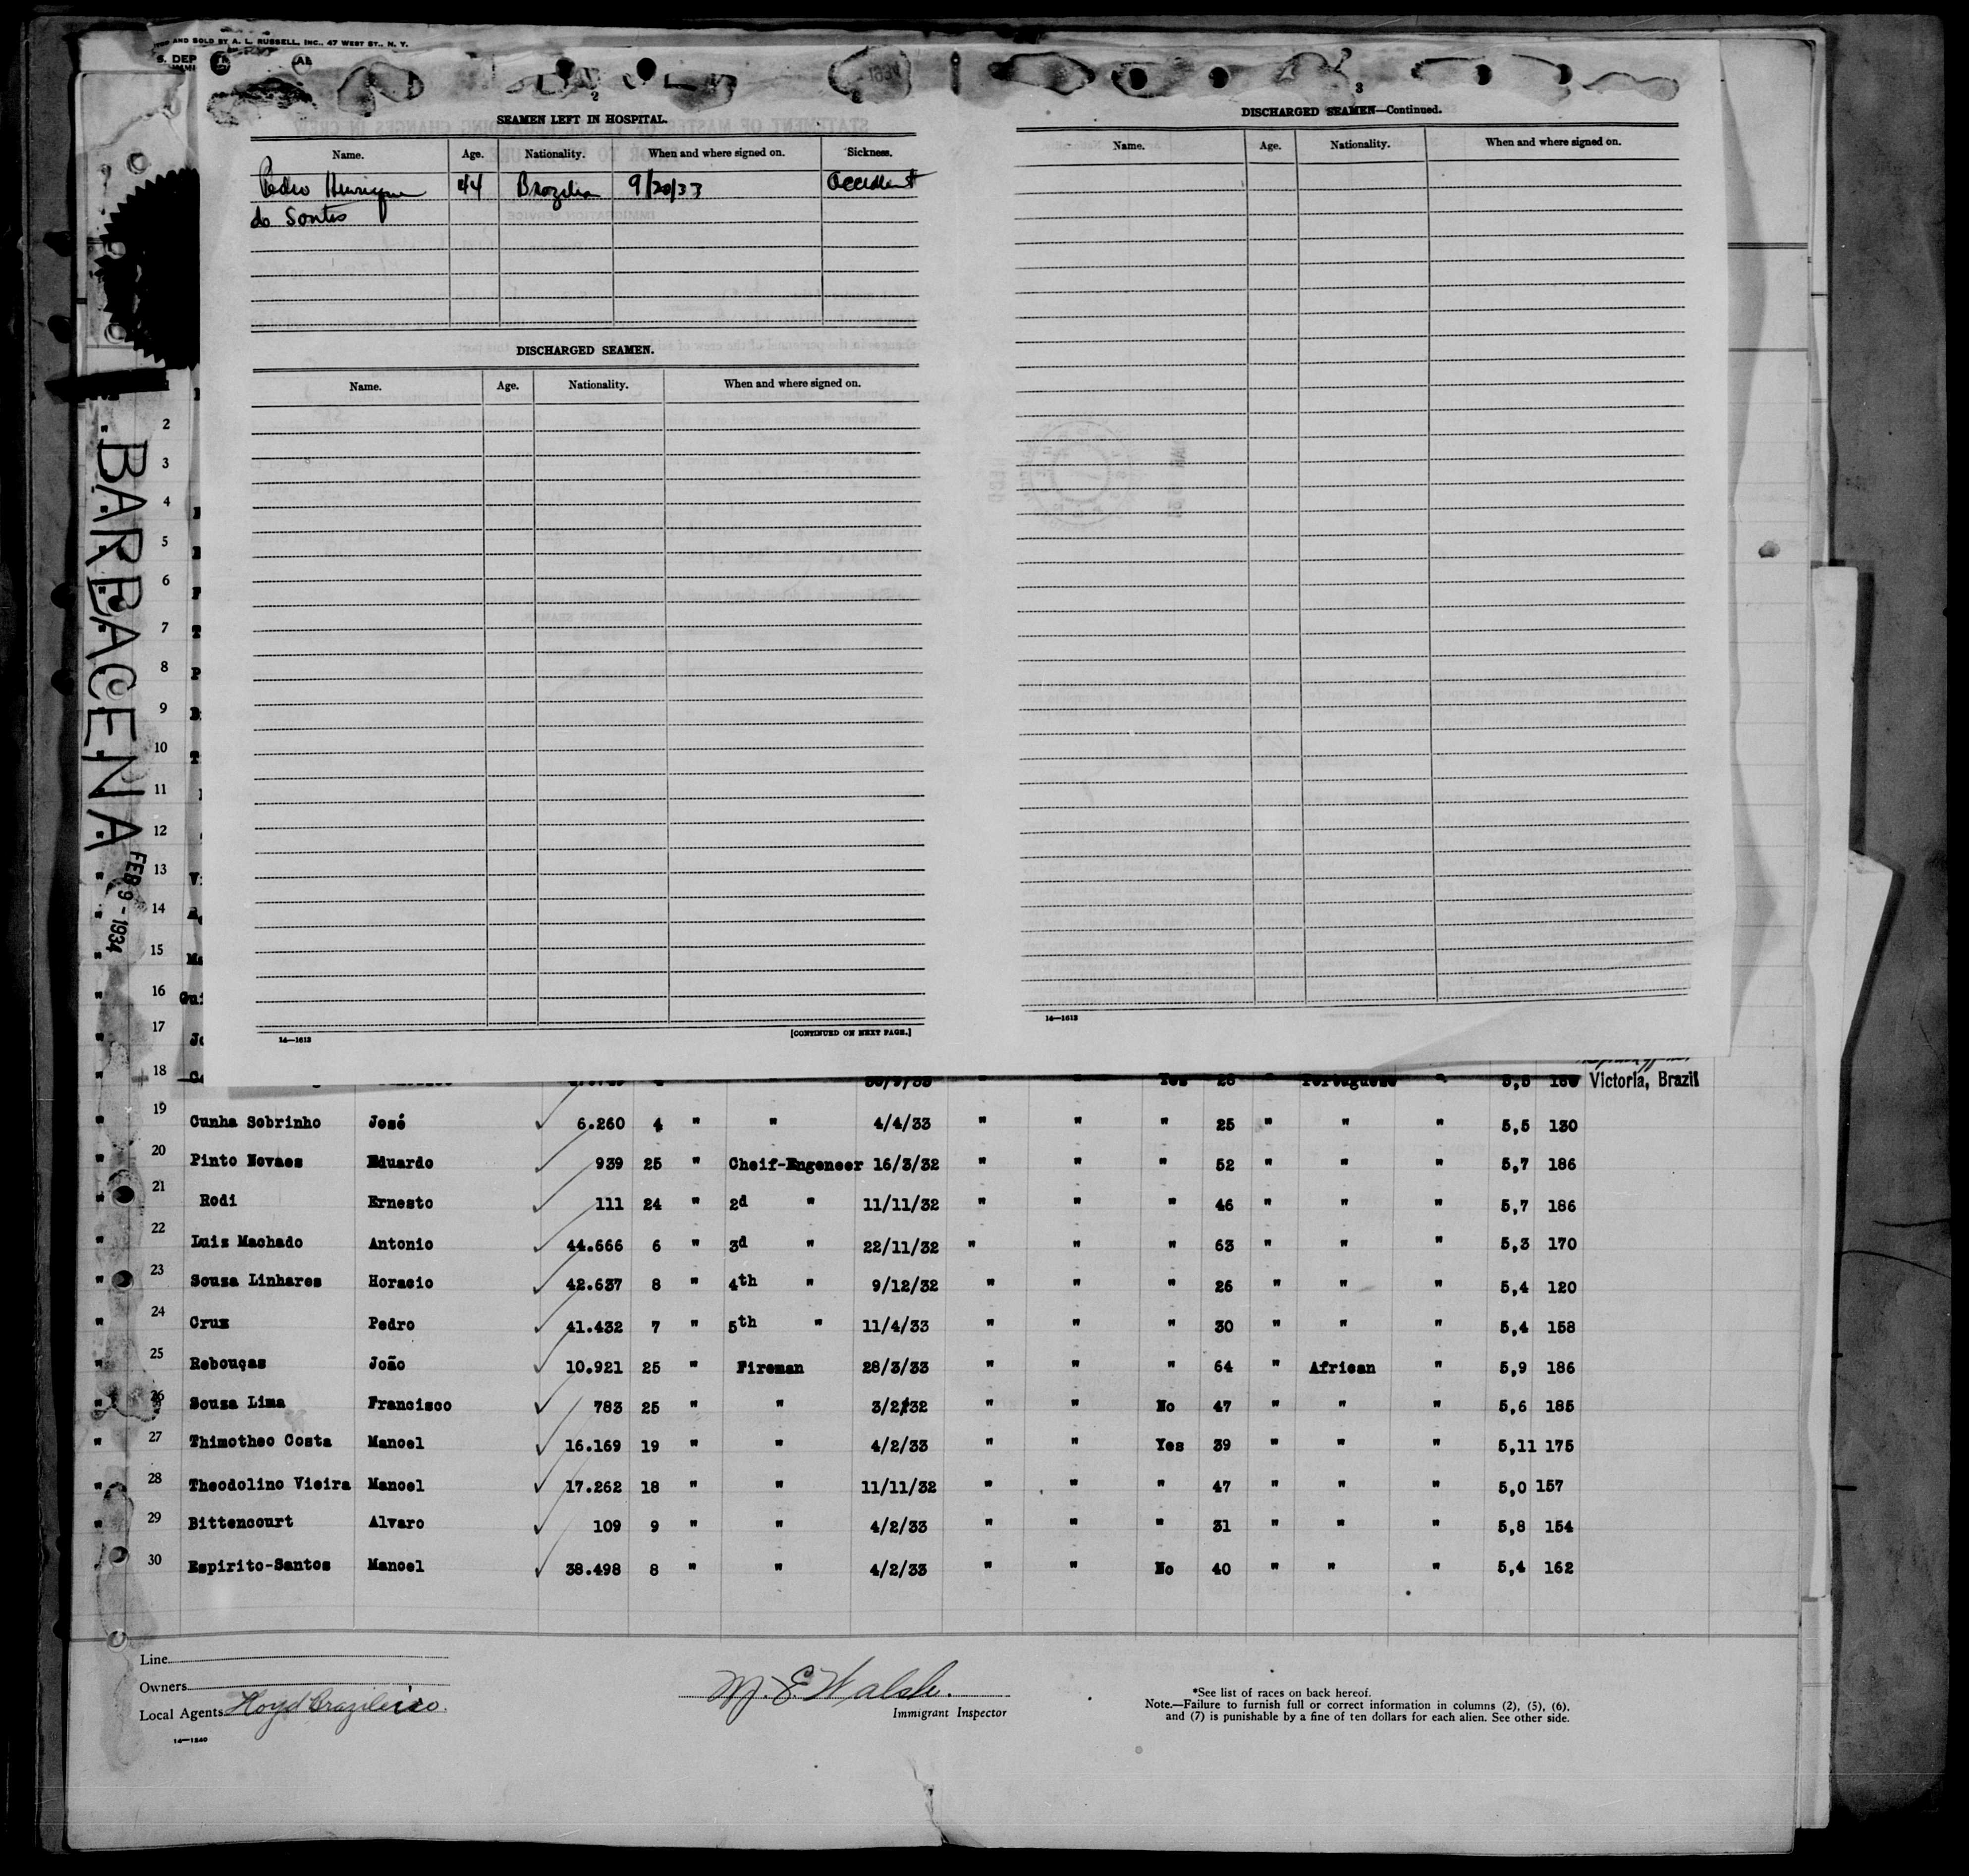 AND SOLD BY A. L. RUSSELL, INC., 47 WEST ST., N. Y.
S. DEP
2
SEAMEN LEFT IN HOSPITAL.
Name. Age. Nationality. When and where signed on. Sickness.
Pedro Henrique 44 Brazilian 9/20/33 Accident
do Santos
DISCHARGED SEAMEN.
Name. Age. Nationality. When and where signed on.
14—1613 [CONTINUED ON NEXT PAGE.]
3
DISCHARGED SEAMEN—Continued.
Name. Age. Nationality. When and where signed on.
14—1613
BARBACENA
FEB 9 - 1934
2
3
4
5
6
7
8
9
10
11
12
13
14
15
16
17
18 30/9/33 " " Yes 26 " Portuguese " 5,5 Victoria, Brazil
" 19 Cunha Sobrinho José 6.260 4 " " 4/4/33 " " " 25 " " " 5,5 130
" 20 Pinto Novaes Eduardo 939 25 " Cheif-Engeneer 16/3/32 " " " 52 " " " 5,7 186
" 21 Rodi Ernesto 111 24 " 2d " 11/11/32 " " " 46 " " " 5,7 186
" 22 Luis Machado Antonio 44.666 6 " 3d " 22/11/32 " " " 63 " " " 5,3 170
" 23 Sousa Linhares Horacio 42.637 8 " 4th " 9/12/32 " " " 26 " " " 5,4 120
" 24 Cruz Pedro 41.432 7 " 5th " 11/4/33 " " " 30 " " " 5,4 158
" 25 Rebouças João 10.921 25 " Fireman 28/3/33 " " " 64 " African " 5,9 186
" 26 Sousa Lima Francisco 783 25 " " 3/2/32 " " No 47 " " " 5,6 185
" 27 Thimotheo Costa Manoel 16.169 19 " " 4/2/33 " " Yes 39 " " " 5,11 175
" 28 Theodolino Vieira Manoel 17.262 18 " " 11/11/32 " " " 47 " " " 5,0 157
" 29 Bittencourt Alvaro 109 9 " " 4/2/33 " " " 31 " " " 5,8 154
" 30 Espirito-Santos Manoel 38.498 8 " " 4/2/33 " " No 40 " " " 5,4 162
Line
Owners
Local Agents Lloyd Brazileiro.
14—1240
M. E. Walsh.
Immigrant Inspector
*See list of races on back hereof.
Note.—Failure to furnish full or correct information in columns (2), (5), (6),
and (7) is punishable by a fine of ten dollars for each alien. See other side.